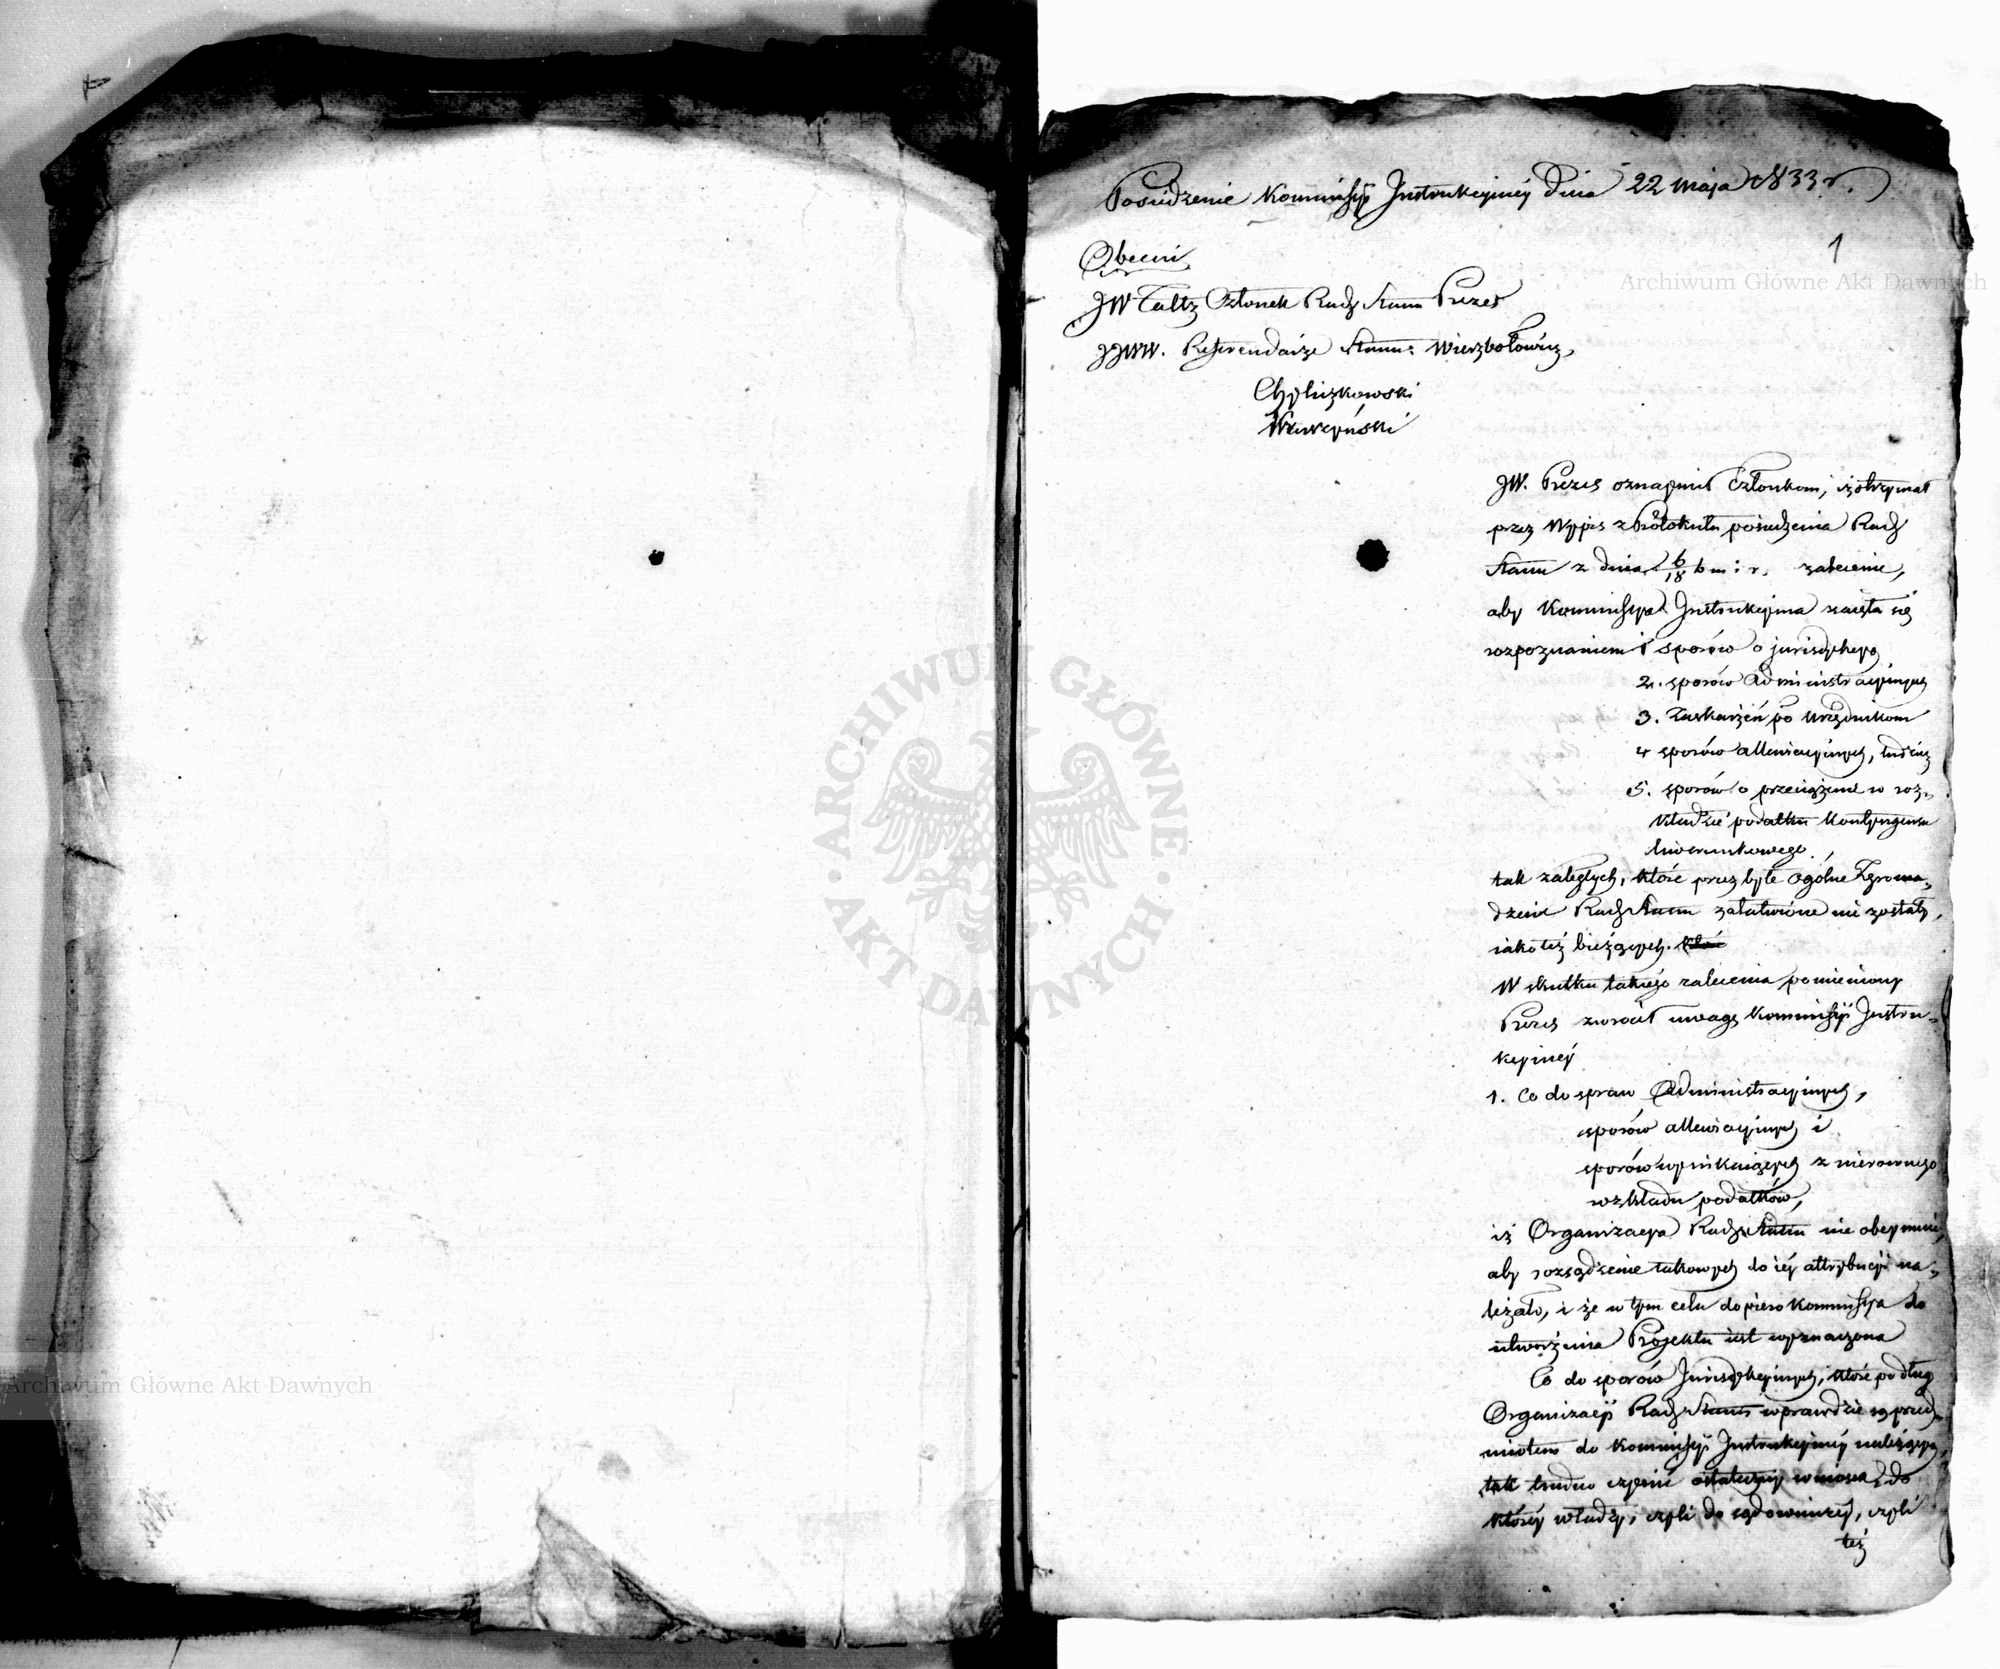 Posiedzenie Kommissyi Instrukcyiney Dnia 22 maja 1833 r.
1
Obecni
JW Członek Rady Stanu Prezes
JJWW. Referendarze Stanu: Wierzbołowicz,
JW. Prezes oznaymił Członkom, iż otrzymał
przez Wypis z Protokułu posiedzenia Rady
Stanu z dnia 6/18 b m: i r. zalecenie,
aby Kommissya Instrukcyina zaięła się
rozpoznaniem 1 sporów o jurisdykcyą
2. sporów Administracyinych
3. Zaskarżeń po urzędnikom
4 sporów allewiacyinych, tudzież
5. sporów o przeciążenie w roz-
kładzie podatku kontyngensu
liwerunkowego.
tak zaległych, które przez byłe Ogólne Zgroma-
dzenie Rady Stanu załatwione nie zostały,
iako też bieżących.
W skutku takiego zalecenia pomieniony
Prezes zwrócił uwagę Kommissyi Instru-
kcyiney
1. Co do spraw Administracyinych,
sporów allewiacyinych i
sporów wynikaiących z nierownego
rozkładu podatków,
iż Organizacya Rady Stanu nie obeymuie,
aby rozsądzenie takowych do iéy attrybucyi na-
leżało, i że w tym celu dopiero Kommissya do
utworzenia Projektu iest wyznaczona
Co do sporów Jurisdykcyinych, które podług
Organizacyi Rady Stanu wprawdzie są przed-
miotem do Kommissyi Instrukcyiney należącym,
tak trudno czynić ostateczny wniosek, do
któréy władzy, czyli do sądowniczéy, czyli
też
ARCHIWUM GŁÓWNE
AKT DAWNYCH
Archiwum Główne Akt Dawnych
Archiwum Główne Akt Dawnych